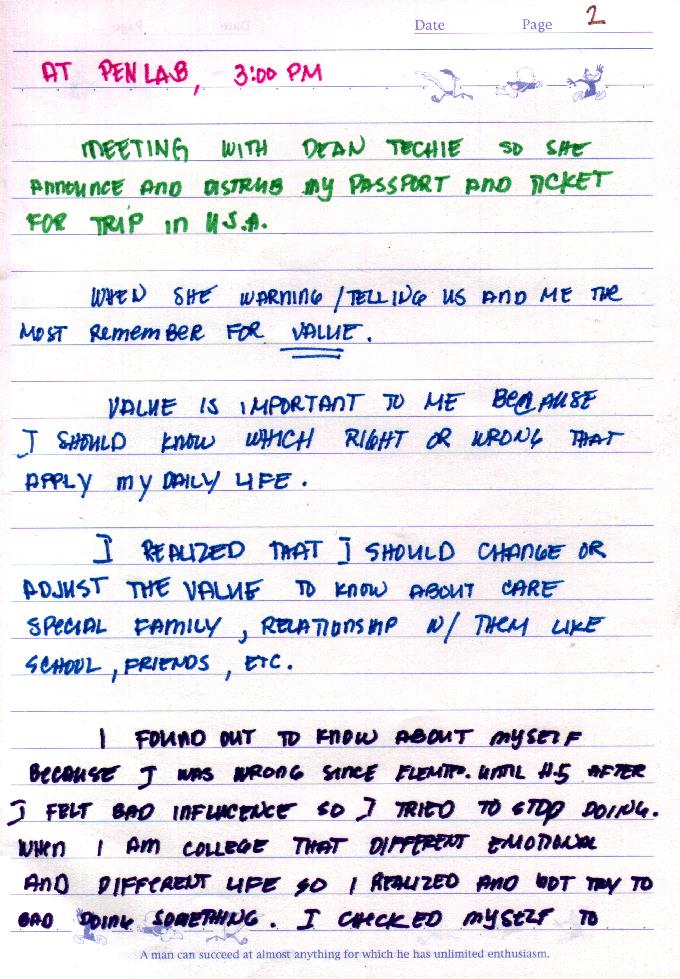 Date Page 2
AT PENLAB, 3:00 PM
MEETING WITH DEAN TECHIE SO SHE
ANNOUNCE AND DISTRIB MY PASSPORT AND TICKET
FOR TRIP IN U.S.A.
WHEN SHE WARNING / TELLING US AND ME THE
MOST REMEMBER FOR VALUE.
VALUE IS IMPORTANT TO ME BECAUSE
I SHOULD KNOW WHICH RIGHT OR WRONG THAT
APPLY MY DAILY LIFE.
I REALIZED THAT I SHOULD CHANGE OR
ADJUST THE VALUE TO KNOW ABOUT CARE
SPECIAL FAMILY, RELATIONSHIP W/ THEM LIKE
SCHOOL, FRIENDS, ETC.
I FOUND OUT TO KNOW ABOUT MYSELF
BECAUSE I WAS WRONG SINCE UNTIL H.S AFTER
I FELT BAD INFLUCENCE SO I TRIED TO STOP DOING.
WHEN I AM COLLEGE THAT DIFFERENT EMOTIONAL
AND DIFFERENT LIFE SO I REALIZED AND NOT TRY TO
BAD DOING SOMETHING. I CHECKED MYSELF TO
A man can succeed at almost anything for which he has unlimited enthusiasm.